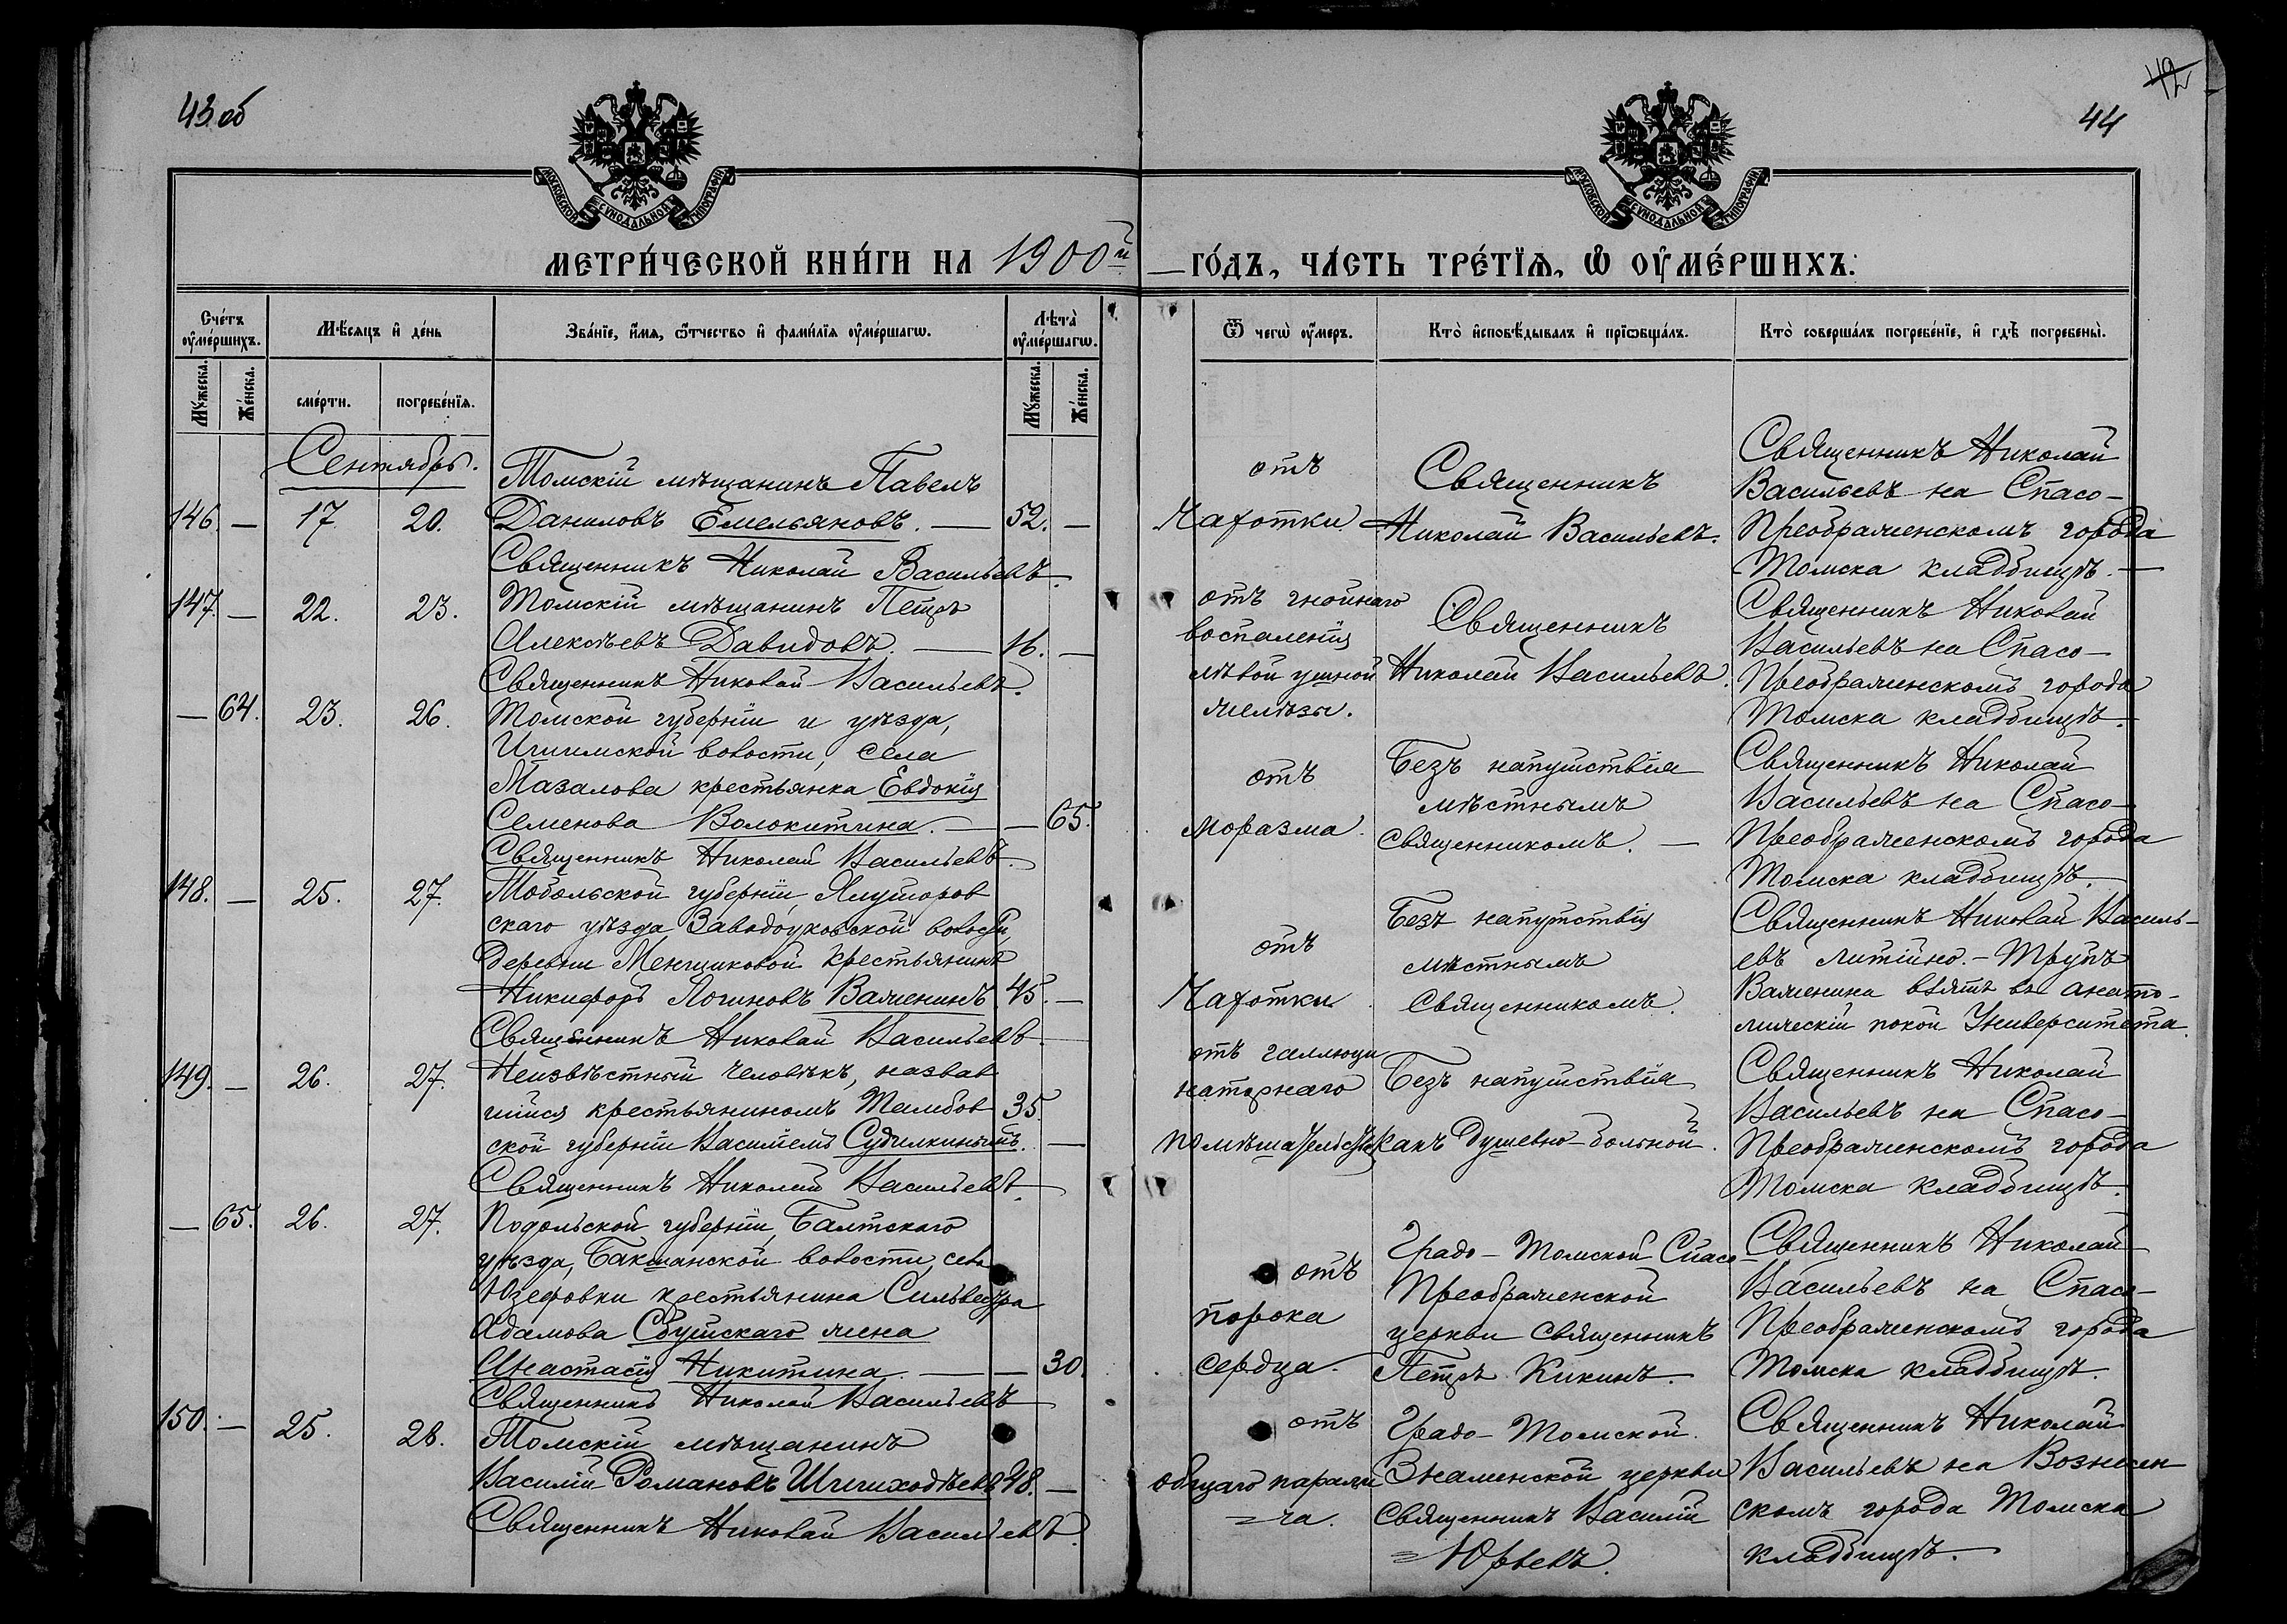 43 об
42
44
МОСКОВСКОЙ СУНОДАЛЬНОЙ ТИПОГРАФІИ
МОСКОВСКОЙ СУНОДАЛЬНОЙ ТИПОГРАФІИ
МЕТРИ́ЧЕСКОЙ КНИ́ГИ НА 1900й ГО́ДЪ, ЧА́СТЬ ТРЕ́ТЇѦ, Ѡ ОУМЕ́РШИХЪ:
Сче́тъ оуме́ршихъ.
Мѣ́сѧцъ и де́нь
Зва́нїе, и́мѧ, ѻ́тчество и фами́лїѧ оуме́ршагѡ.
Лѣта̀ оуме́ршагѡ.
Ѿ чегѡ̀ оу́меръ.
Кто̀ исповѣ́дывалъ и прїѡбща́лъ.
Кто̀ соверша́лъ погребе́нїе, и гдѣ̀ погребены̀.
Му́жеска.
Же́нска.
сме́рти.
погребе́нїѧ.
Му́жеска.
Же́нска.
Сентябрь.
146. — 17. 20.
Томскій мѣщанинъ Павелъ
Даниловъ Емельяновъ. — 52. —
Священникъ Николай Васильевъ.
отъ
Чахотки
Священникъ
Николай Васильевъ.
Священникъ Николай
Васильевъ на Спасо-
Преображенскомъ города
Томска кладбищѣ. —
147. — 22. 23.
Томскій мѣщанинъ Петръ
Алексѣевъ Давидовъ. — 16. —
Священникъ Николай Васильевъ.
отъ гнойнаго
воспаленія
лѣвой ушной
железы.
Священникъ
Николай Васильевъ.
Священникъ Николай
Васильевъ на Спасо-
Преображенскомъ города
Томска кладбищѣ.
— 64. 23. 26.
Томской губерніи и уѣзда,
Ишимской волости, села
Мазалова крестьянка Евдокія
Семенова Волокитина. — — 65.
Священникъ Николай Васильевъ.
отъ
моразма.
Безъ напутствія
мѣстнымъ
священникомъ. —
Священникъ Николай
Васильевъ на Спасо-
Преображенскомъ города
Томска кладбищѣ.
148. — 25. 27.
Тобольской губерніи, Ялуторов
скаго уѣзда Заводоуковской волости,
деревни Менщиковой крестьянинъ
Никифоръ Логиновъ Важенинъ 45. —
Священникъ Николай Васильевъ.
отъ
Чахотки
Безъ напутствія
мѣстнымъ
священникомъ.
Священникъ Николай Василь-
евъ литійно. - Трупъ
Важенина взятъ въ анато-
мическій покой Университета.
149. — 26. 27.
Неизвѣстный человѣкъ, назвав
шійся крестьяниномъ Тамбов 35.
ской губерніи Василіемъ Судилкинымъ. —
Священникъ Николай Васильевъ.
отъ галлюци
наторнаго
помѣшательства
Безъ напутствія
какъ душевно-больной.
Священникъ Николай
Васильевъ на Спасо-
Преображенскомъ города
Томска кладбищѣ.
— 65. 26. 27.
Подольской губерніи, Балтскаго
уѣзда, Бакшанской волости, села
Юзефовки крестьянина Сильвестра
Адамова Сбушскаго жена
Анастасія Никитина. — — 30.
Священникъ Николай Васильевъ
отъ
порока
сердца.
Градо-Томской Спасо-
Преображенской
церкви священникъ
Петръ Кикинъ.
Священникъ Николай
Васильевъ на Спасо-
Преображенскомъ города
Томска кладбищѣ.
150. — 25. 28.
Томскій мѣщанинъ
Василій Романовъ Шишходѣевъ 48. —
Священникъ Николай Васильевъ.
отъ
общаго парали
=ча.
Градо-Томской.
Знаменской церкви
священникъ Василій
=Юрьевъ.
Священникъ Николай
Васильевъ на Вознесен
скомъ города Томска
кладбищѣ.